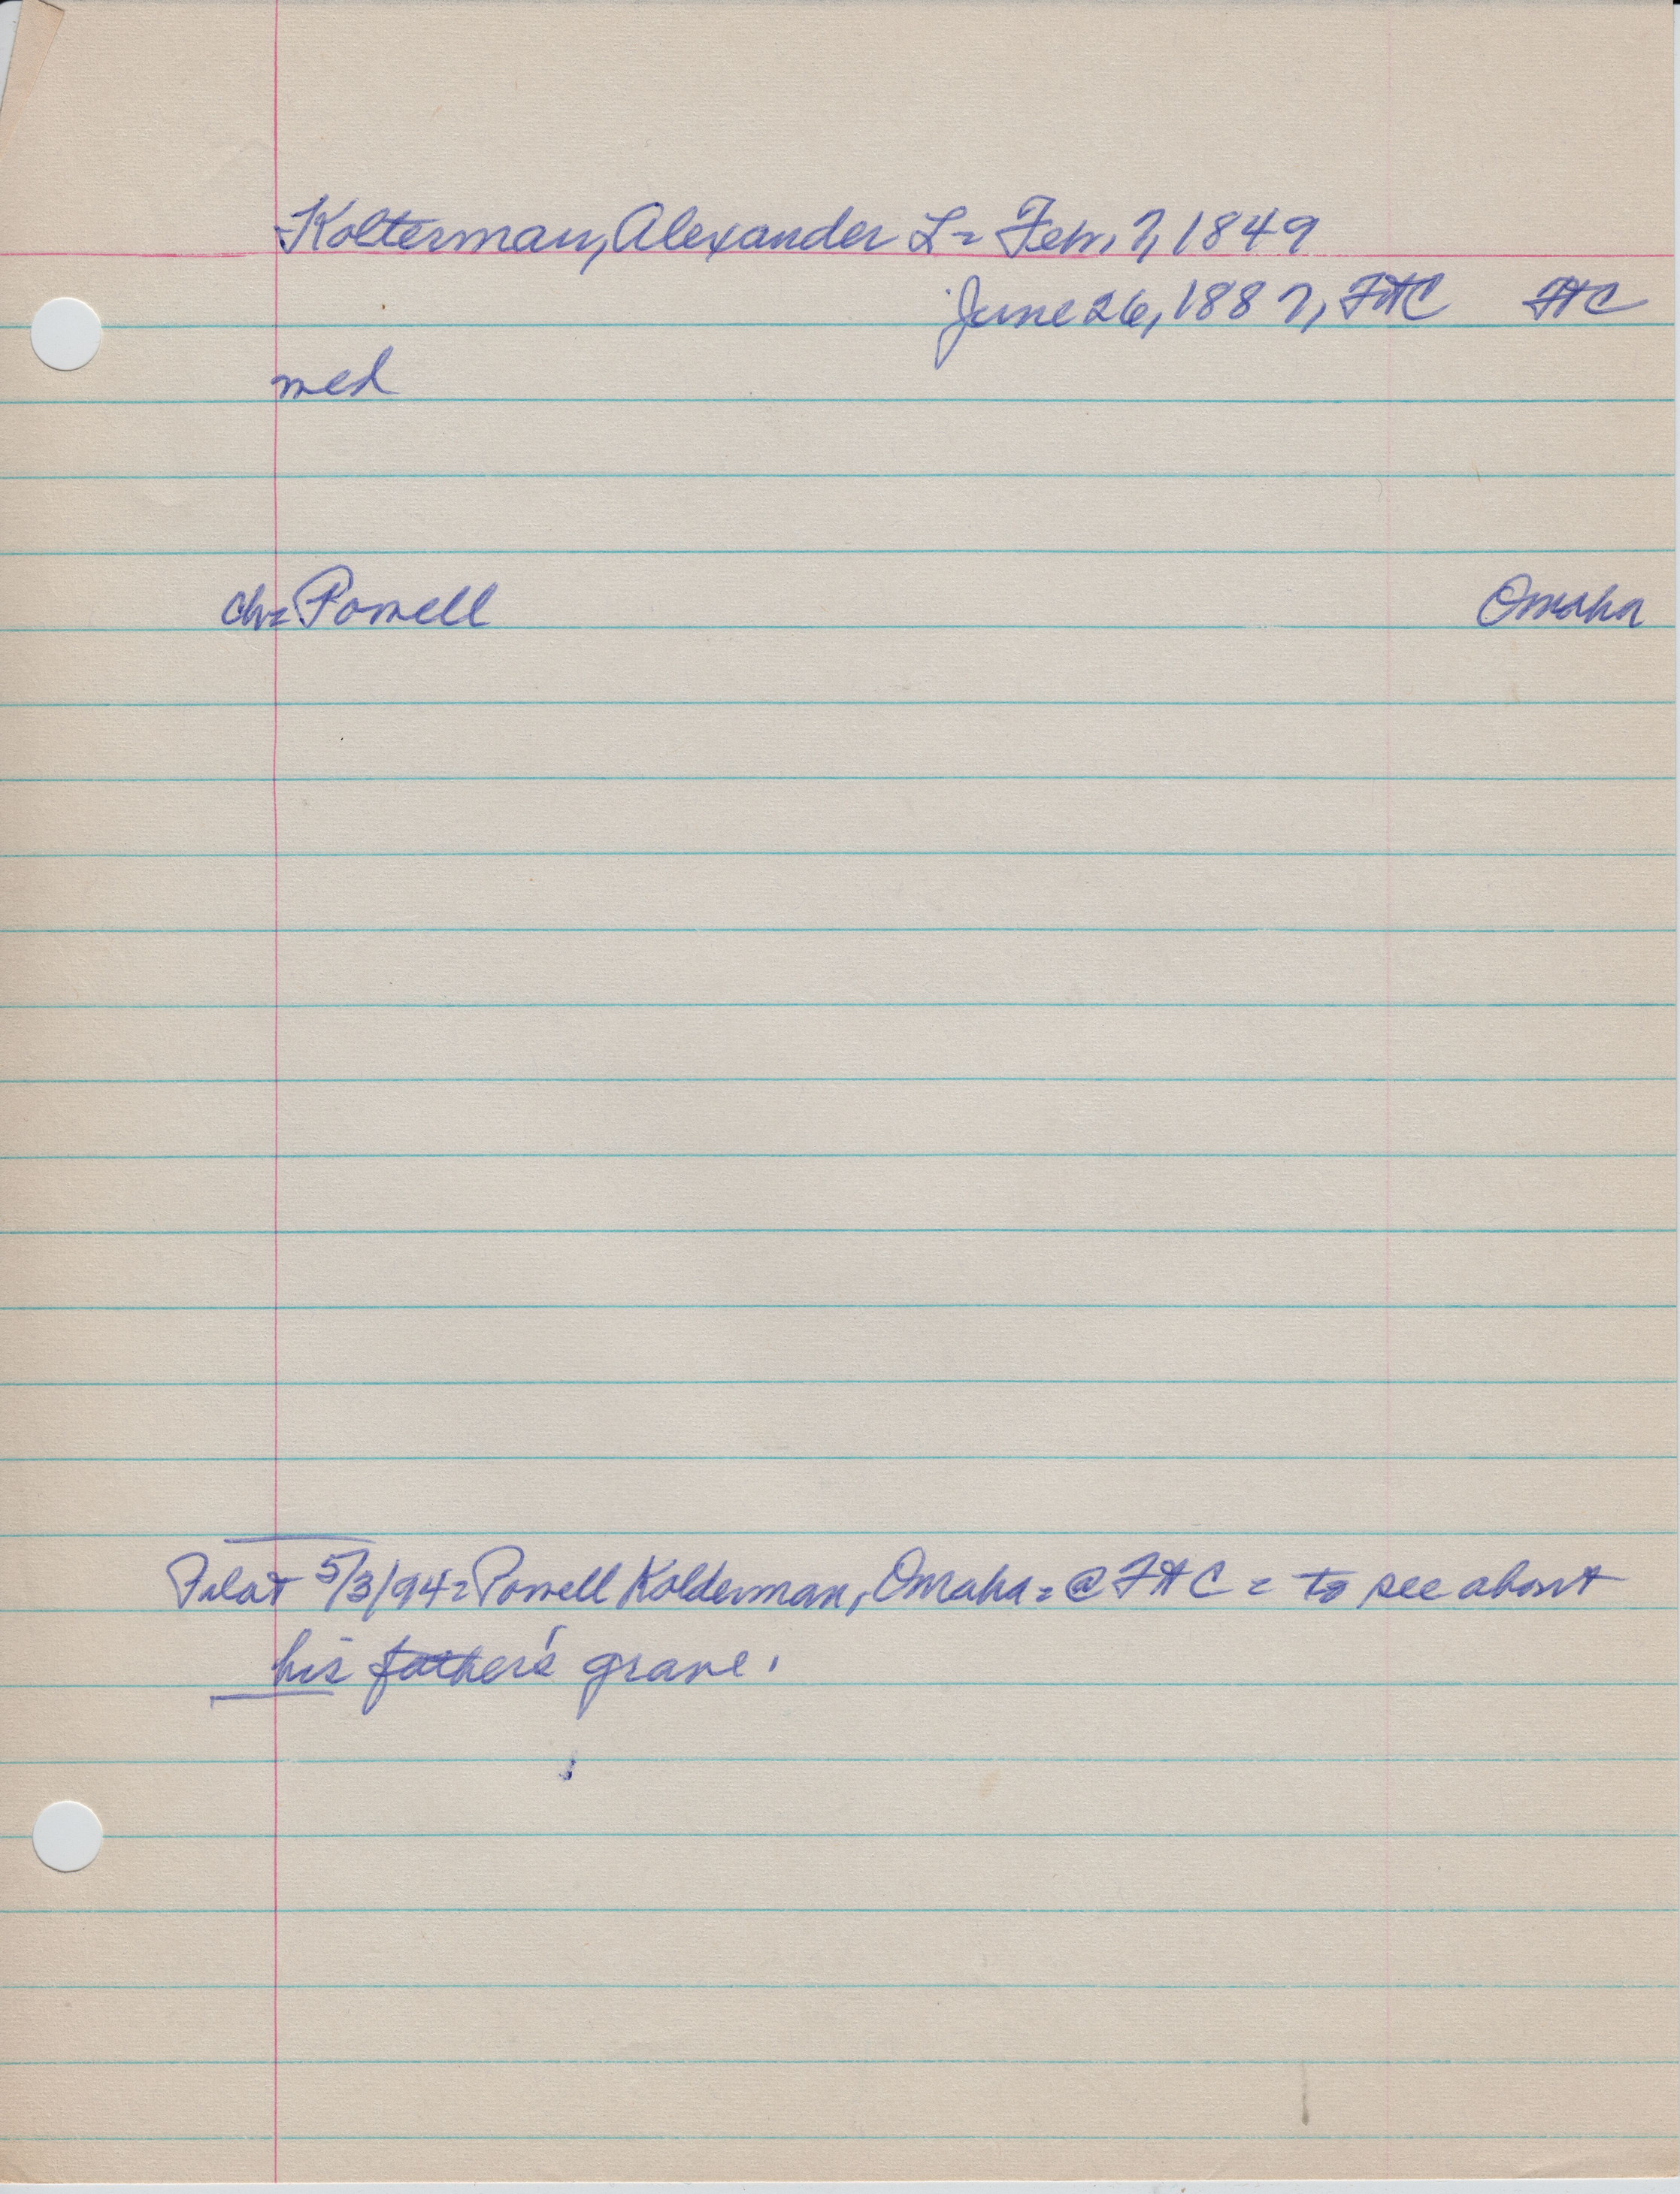 Kolterman, Alexander L = Feb. 7, 1849
June 26, 1887, FHC FHC
med
ch = Powell Omaha
5/3/94 = Powell Kolderman, Omaha = @ FHC = to see about
his father's grave.